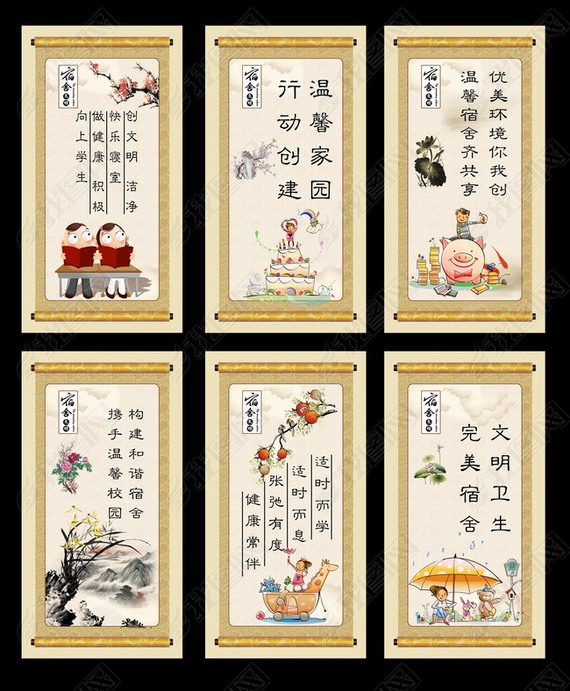 宿舍文明
创文明 洁净
快乐寝室
做健康 积极
向上学生
宿舍文明
温馨家园
行动创建
宿舍文明
优美环境你我创
温馨宿舍齐共享
宿舍文明
构建和谐宿舍
携手温馨校园
宿舍文明
适时而学
适时而息
张弛有度
健康常伴
宿舍文明
文明卫生
完美宿舍